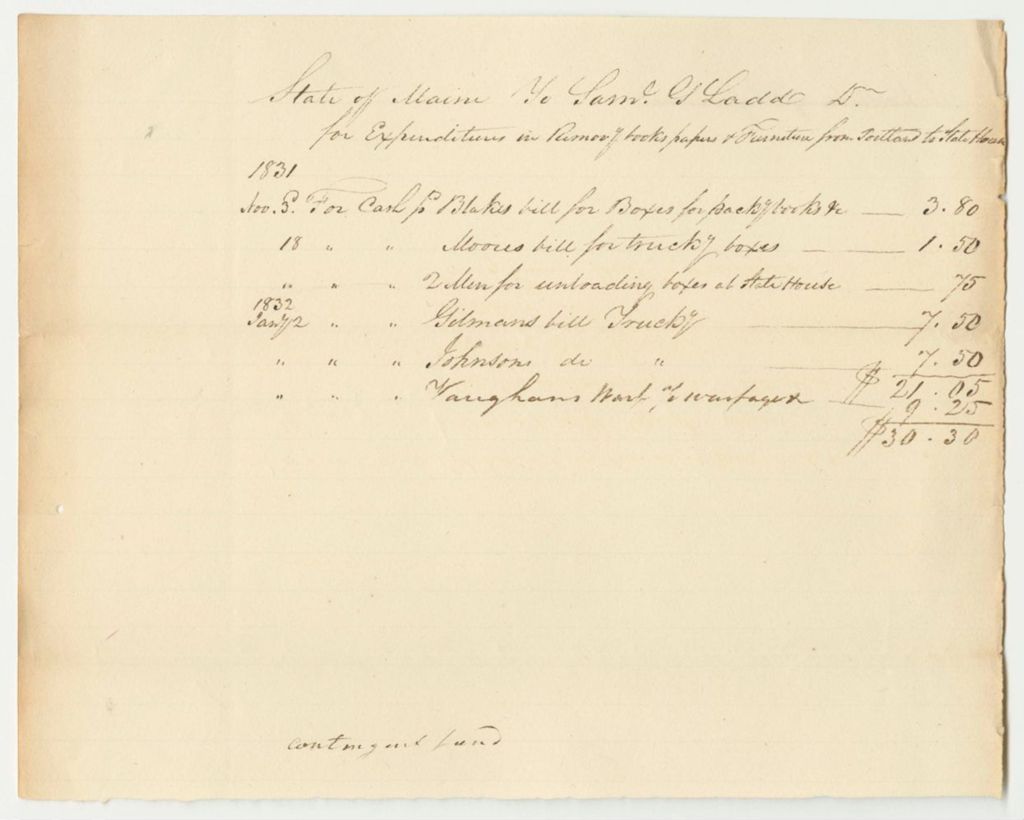 State of Maine To Saml. G Ladd Dr
for Expenditures in Removg books papers & Furniture from Portland to State House
1831
Nov. 5. For Cash pd Blakes bill for Boxes for packg books &c 3.80
18 " " Moores bill for truckg boxes 1.50
" " " 2 Men for unloading boxes at State House 75
1832
Jany 2 " " Gilmans bill Truckg 7.50
" " " Johnsons do " 7.50
$ 21.05
" " " Vaughans Warf 9.25
$30.30
contingent fund